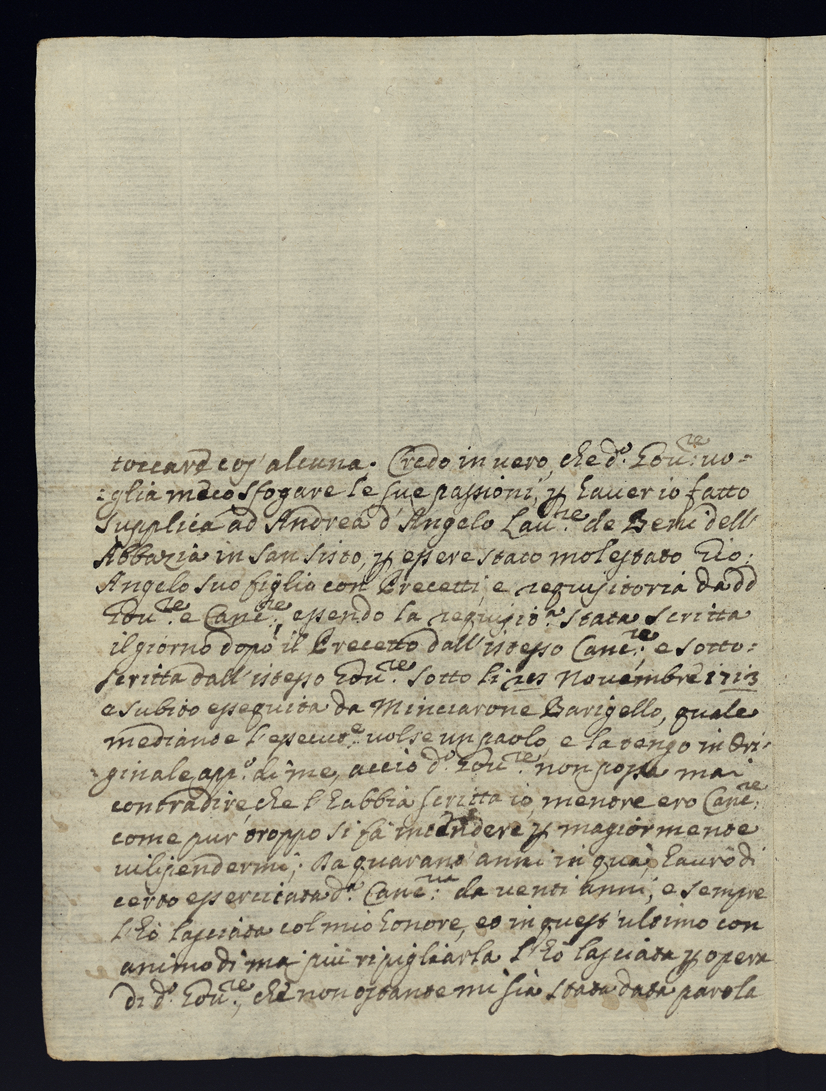 toccare cos' alcuna. Credo in vero, che d.º Gov.re vo=
=glia meco sfogare le sue passioni, p haver io fatto
Supplica ad Andrea d'Angelo Lav.re de Beni dell'
Abbazia in San Sisto, p essere stato molestato Gio:
Angelo suo figlio con Precetti, e requisitoria da dd
Gov.re e Canc.re, essendo la requisit.ª stata scritta
il giorno dopo il Precetto dall'istesso Canc.re; e sotto=
scritta dall'istesso Gov.re sotto li Novembre 1713
e subito esseguita da Minciarone Barigello, quale
mediante l'esecut.e volse un paolo, e la tengo in Ori=
=ginale app.º di me, acciò d.º Gov.re non possa mai
contradire, che l'habbia scritta io, mentre ero Canc.re,
come pur troppo si fa intendere p magiormente
vilipendermi; Da quarant'anni in quà, havrò di
certo essercitata d.ª Canc.ria da venti anni, e sempre
l'hò lasciata col mio honore, et in quest'ultimo con
animo di mai più ripigliarla l'hò lasciata p opera
di d.º Gov.re, che non ostante mi sia stata data parola